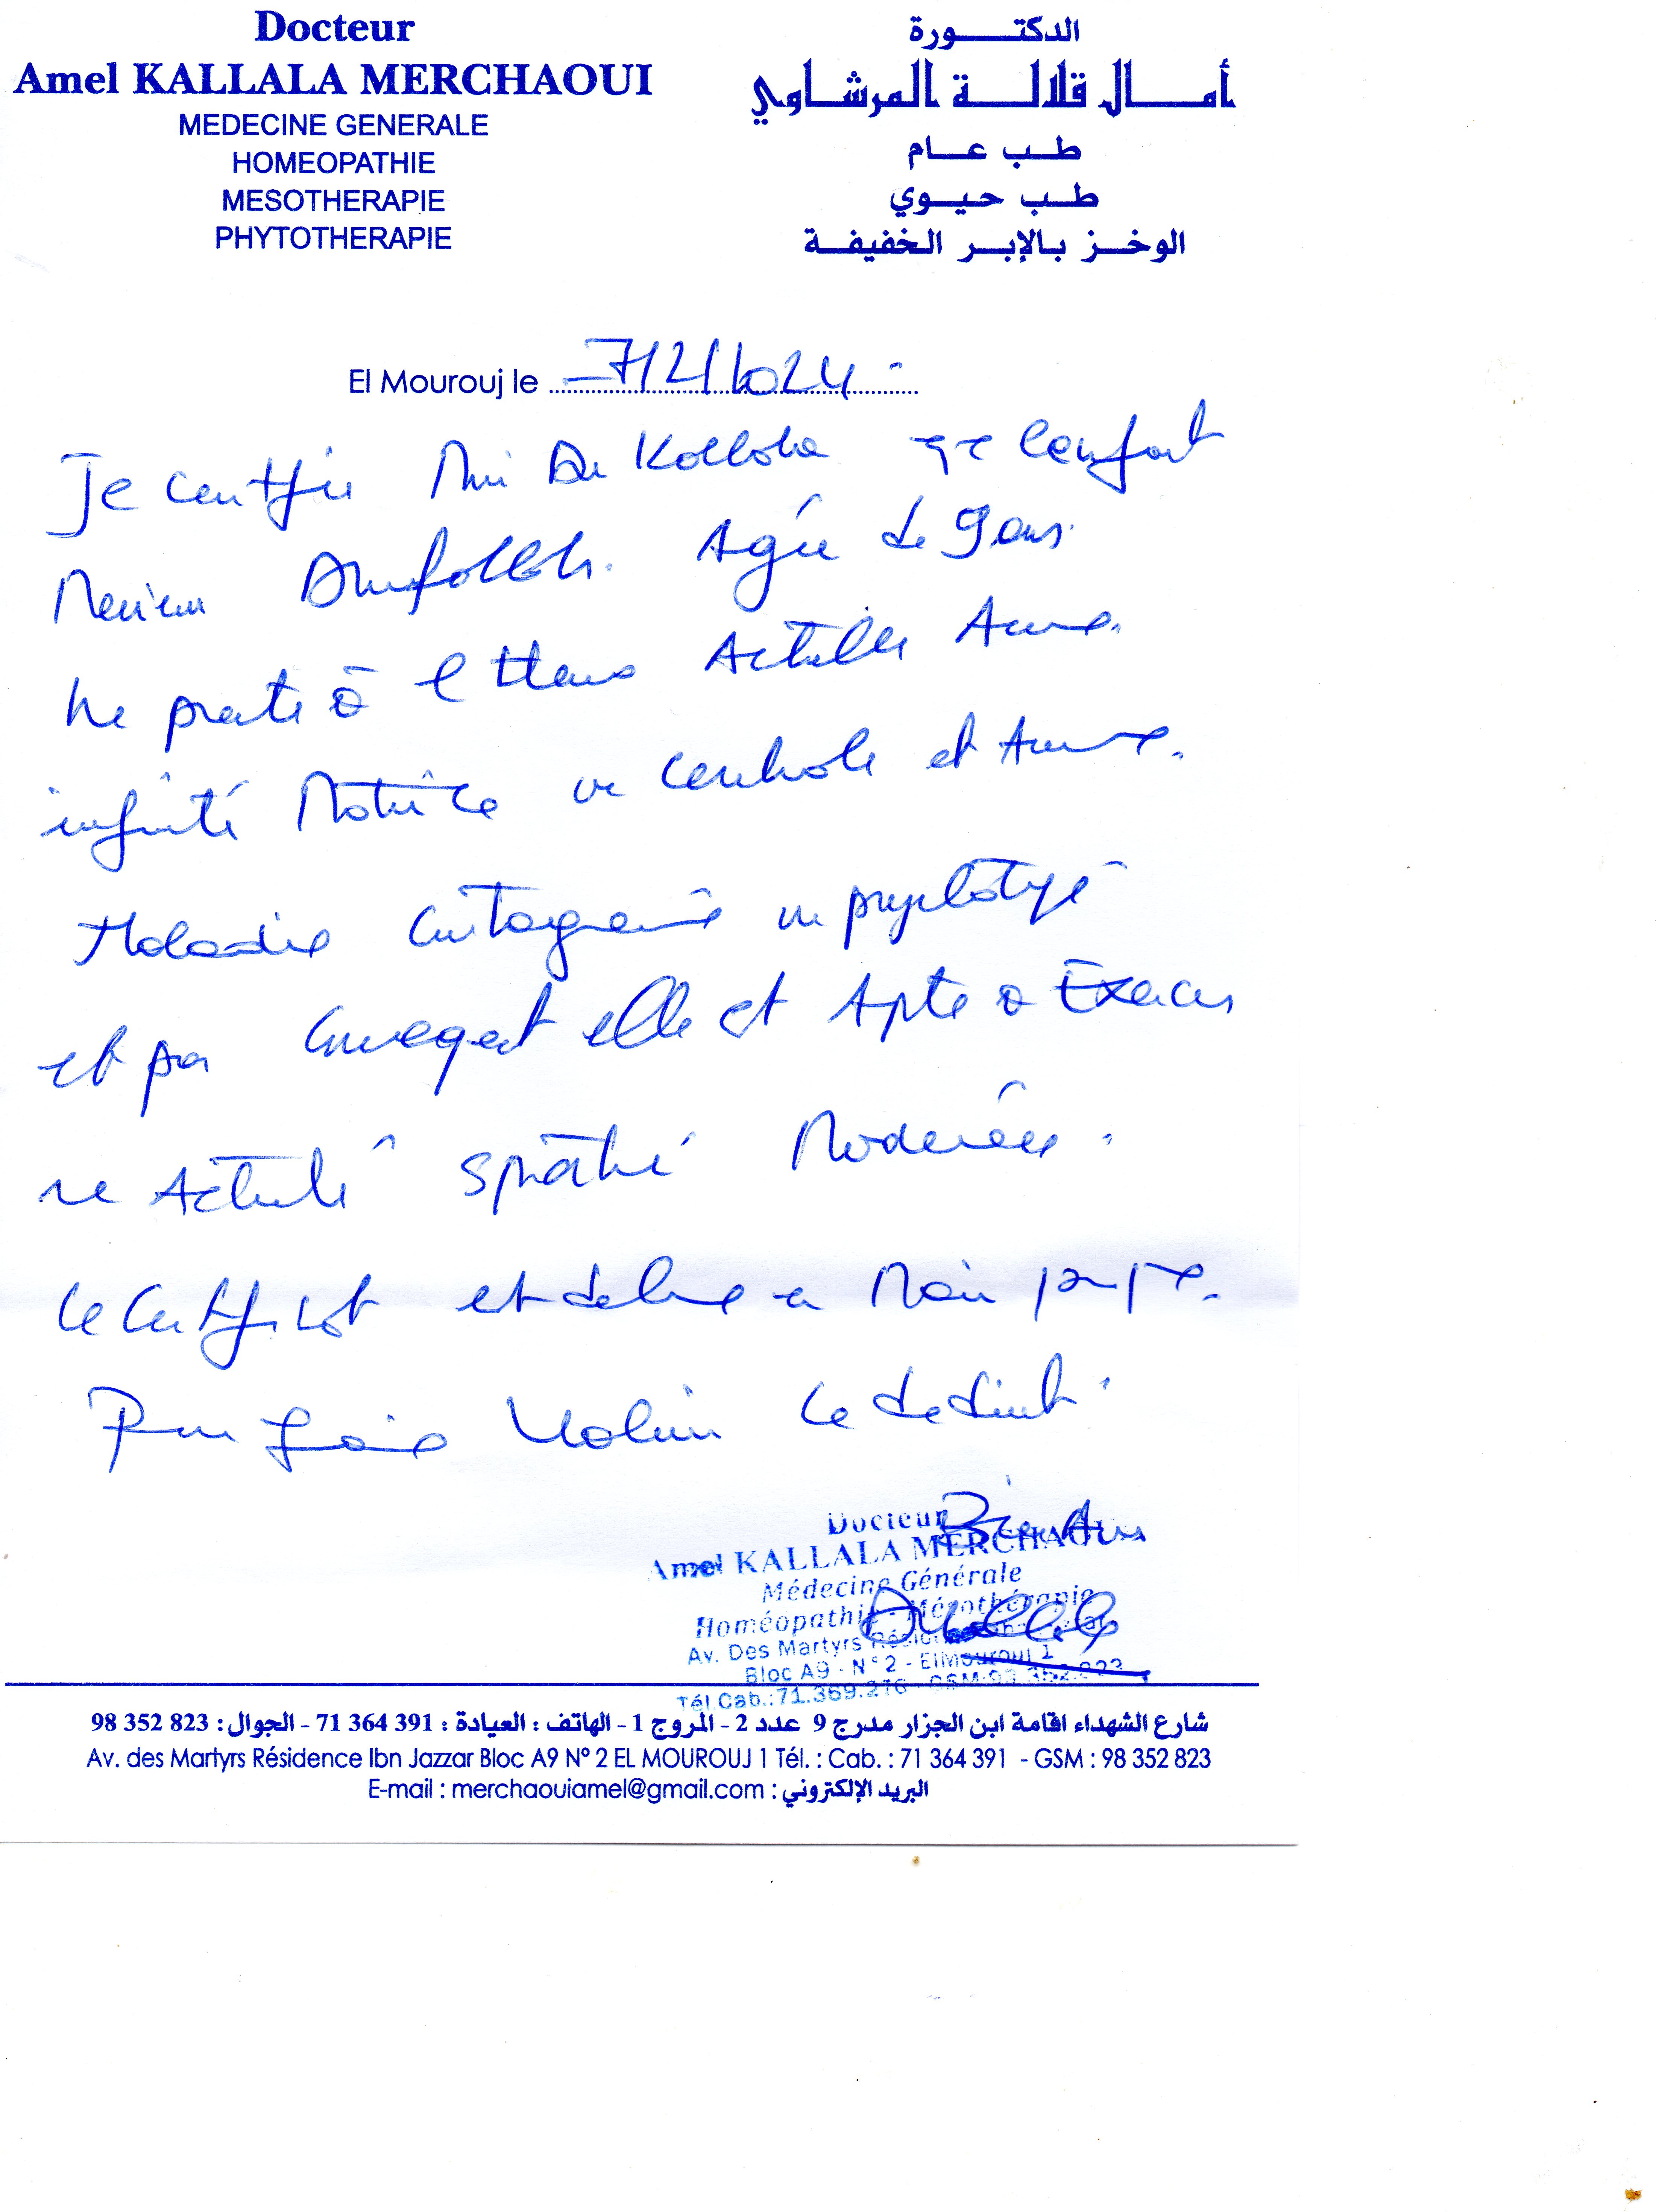 Docteur
Amel KALLALA MERCHAOUI
MEDECINE GENERALE
HOMEOPATHIE
MESOTHERAPIE
PHYTOTHERAPIE
الدكتـــورة
أمـــال قلالـــة المرشــاوي
طــب عــام
طــب حيــوي
الوخــز بـالإبــر الخفيفــة
El Mourouj le 7/2/2024
Je certifie Moi Dr Kallala que l'enfant
Meriem Agée de 9 ans.
Ne porte à l'examen Actuelle Aucune
infirmité Motrice ou cérébrale et Aucune
Maladie Contagieuse ou
et par conséquent elle est Apte à Exercer
une Activité sportive Modérée.
Ce Certificat est délivré en Main propre
Pour faire Valoir Ce de droit
Docteur
Amel KALLALA MERCHAOUI
Médecine Générale
Homéopathie - Mésothérapie
Av. Des Martyrs
Bloc A9 - N° 2 - El Mourouj 1
Tél Cab.: 71.369.276 - GSM
شارع الشهداء اقامة ابن الجزار مدرج 9 عدد 2 - المروج 1 - الهاتف : العيادة : 391 364 71 - الجوال : 823 352 98
Av. des Martyrs Résidence Ibn Jazzar Bloc A9 N° 2 EL MOUROUJ 1 Tél. : Cab. : 71 364 391 - GSM : 98 352 823
E-mail : merchaouiamel@gmail.com : البريد الإلكتروني